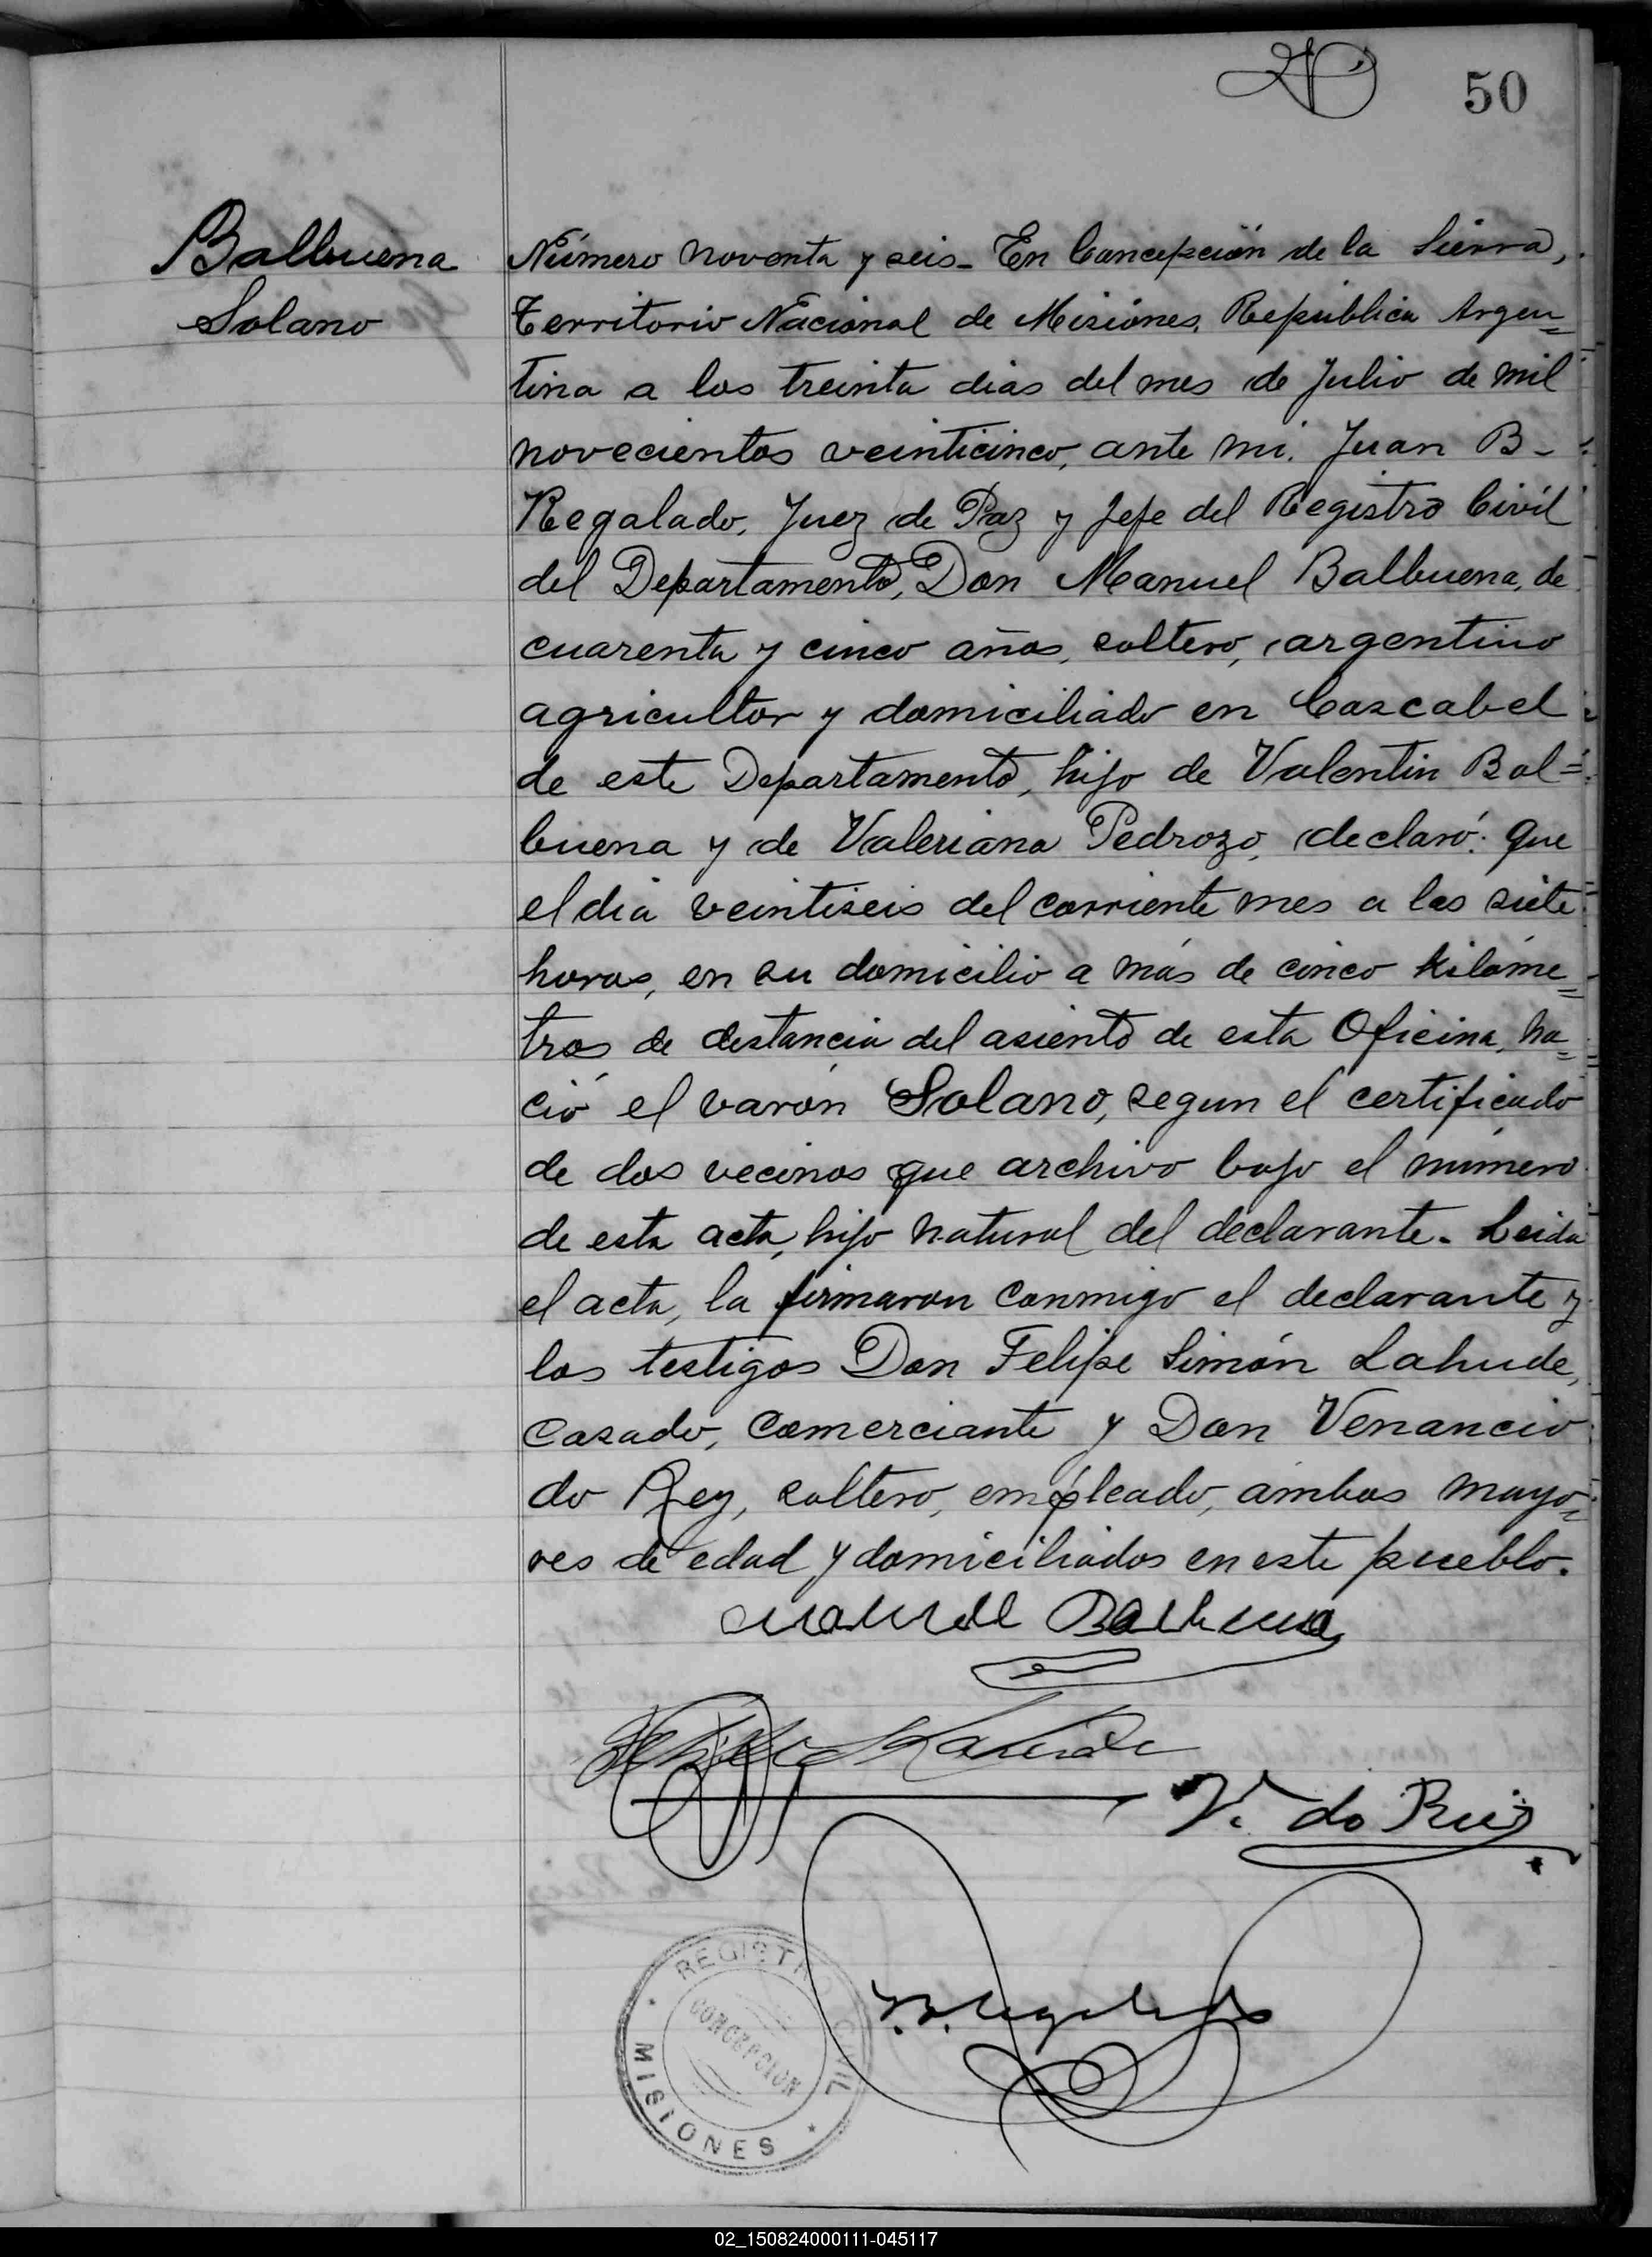 50
Balbuena
Solano
Número noventa y seis - En Concepción de la Sierra,
Territorio Nacional de Misiones, República Argen=
tina a los treinta dias del mes de Julio de mil
novecientos veinticinco, ante mi, Juan B-
Regalado, Juez de Paz y Jefe del Registro Civil
del Departamento, Don Manuel Balbuena, de
cuarenta y cinco años, soltero, argentino
agricultor y domiciliado en Cascabel
de este Departamento, hijo de Valentin Bal=
buena y de Valeriana Pedrozo, declaró: que
el dia veintiseis del corriente mes a las siete
horas, en su domicilio a más de cinco kilóme=
tros de distancia del asiento de esta Oficina, na=
ció el varón Solano, segun el certificado
de dos vecinos que archivo bajo el número
de esta acta, hijo natural del declarante. Leida
el acta, la firmaron conmigo el declarante y
los testigos Don Felipe Simón Lahude,
casado, comerciante y Don Venancio
do Rey, soltero, empleado, ambos mayo=
res de edad y domiciliados en este pueblo.
Manuel Balbuena
Felipe S Lahude
V. do Rey
J. B. Regalado
REGISTRO CIVIL
CONCEPCION
MISIONES
02_150824000111-045117